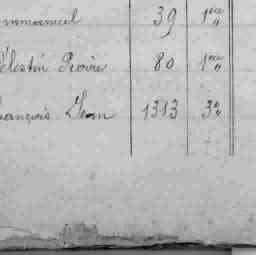 mmanuel 39 1ère "
élestin Rosier 80 1ère "
rançois Jean 1313 3e "